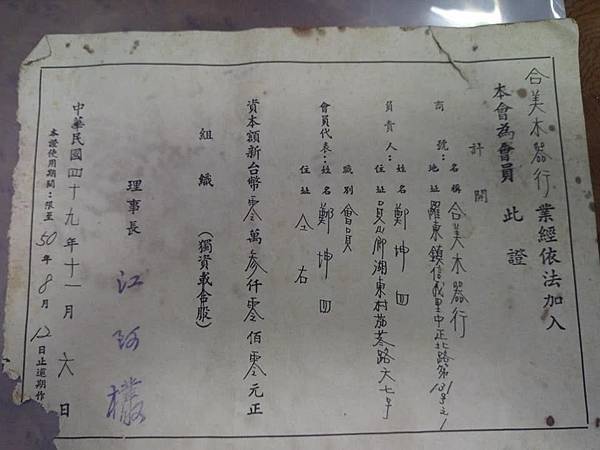 合美木器行業經依法加入
本會為會員 此證
計開
商號：名稱 合美木器行
地址 羅東鎮信義里中正北路第131号之1
負責人：姓名 鄭坤四
住址 員山鄉湖東村茄苳路六七号
職別 會員
會員代表：姓名 鄭坤四
住址 仝右
資本額新台幣零萬參仟零佰零元正
組織（獨資或合股）
理事長 江阿
中華民國四十九年十一月六日
本證使用期間：限至50年8月12日止逾期作